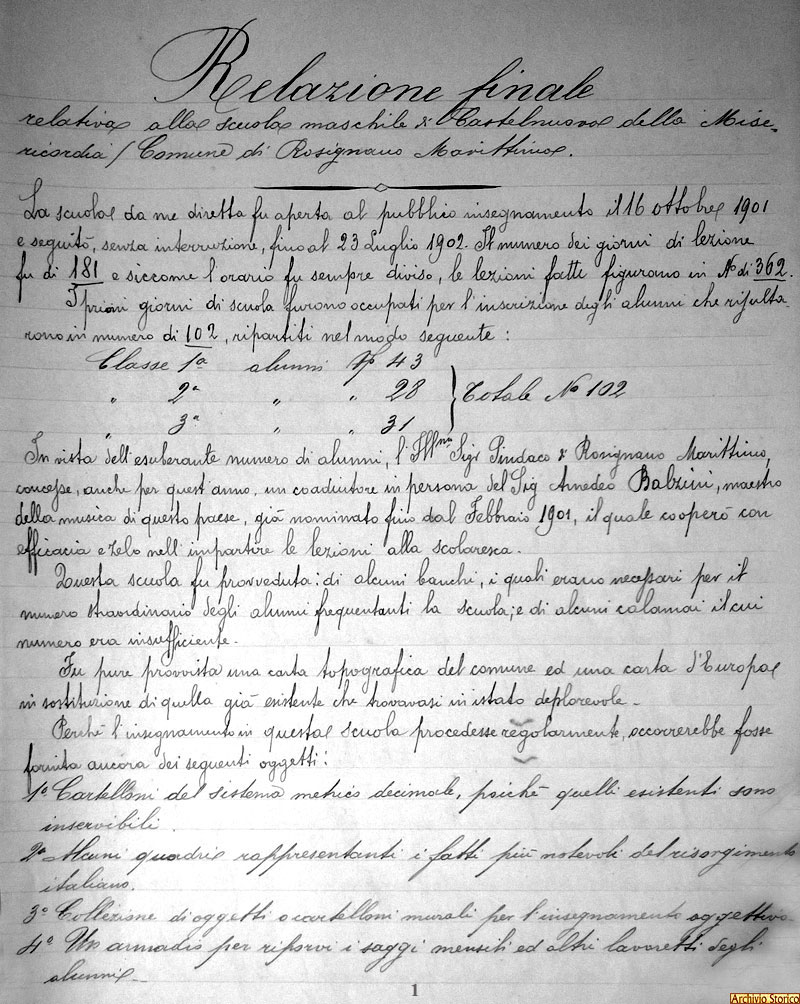 Relazione finale
relativa alla scuola maschile di Castelnuovo della Mise-
ricordia / Comune di Rosignano Marittimo.
La scuola da me diretta fu aperta al pubblico insegnamento il 16 ottobre 1901
e seguitò, senza interruzione, fino al 23 Luglio 1902. Il numero dei giorni di lezione
fu di 181 e siccome l'orario fu sempre diviso, le lezioni fatte figurano in No di 362.
I primi giorni di scuola furono occupati per l'inscrizione degli alunni che risulta-
rono in numero di 102, ripartiti nel modo seguente:
Classe 1a alunni No 43
" 2a " " 28 Totale No 102
" 3a " " 31
In vista dell'esuberante numero di alunni, l'Illmo Sigr Sindaco di Rosignano Marittimo,
concesse, anche per quest'anno, un coadiutore in persona del Sig Amedeo Balzini, maestro
della musica di questo paese, già nominato fino dal Febbraio 1901, il quale cooperò con
efficacia e zelo nell'impartire le lezioni alla scolaresca.
Questa scuola fu provveduta: di alcuni banchi, i quali erano necessari per il
numero straordinario degli alunni frequentanti la scuola; e di alcuni calamai il cui
numero era insufficiente.
Fu pure provvista una carta topografica del comune ed una carta d'Europa
in sostituzione di quella già esistente che trovavasi in istato deplorevole.
Perché l'insegnamento in questa scuola procedesse regolarmente, occorrerebbe fosse
fornita ancora dei seguenti oggetti:
1o Cartelloni del sistema metrico decimale, poichè quelli esistenti sono
inservibili.
2o Alcuni quadri rappresentanti i fatti più notevoli del risorgimento
italiano.
3o Collezione di oggetti o cartelloni murali per l'insegnamento oggettivo.
4o Un armadio per riporvi i saggi mensili ed altri lavoretti degli
alunni.
1
Archivio Storico